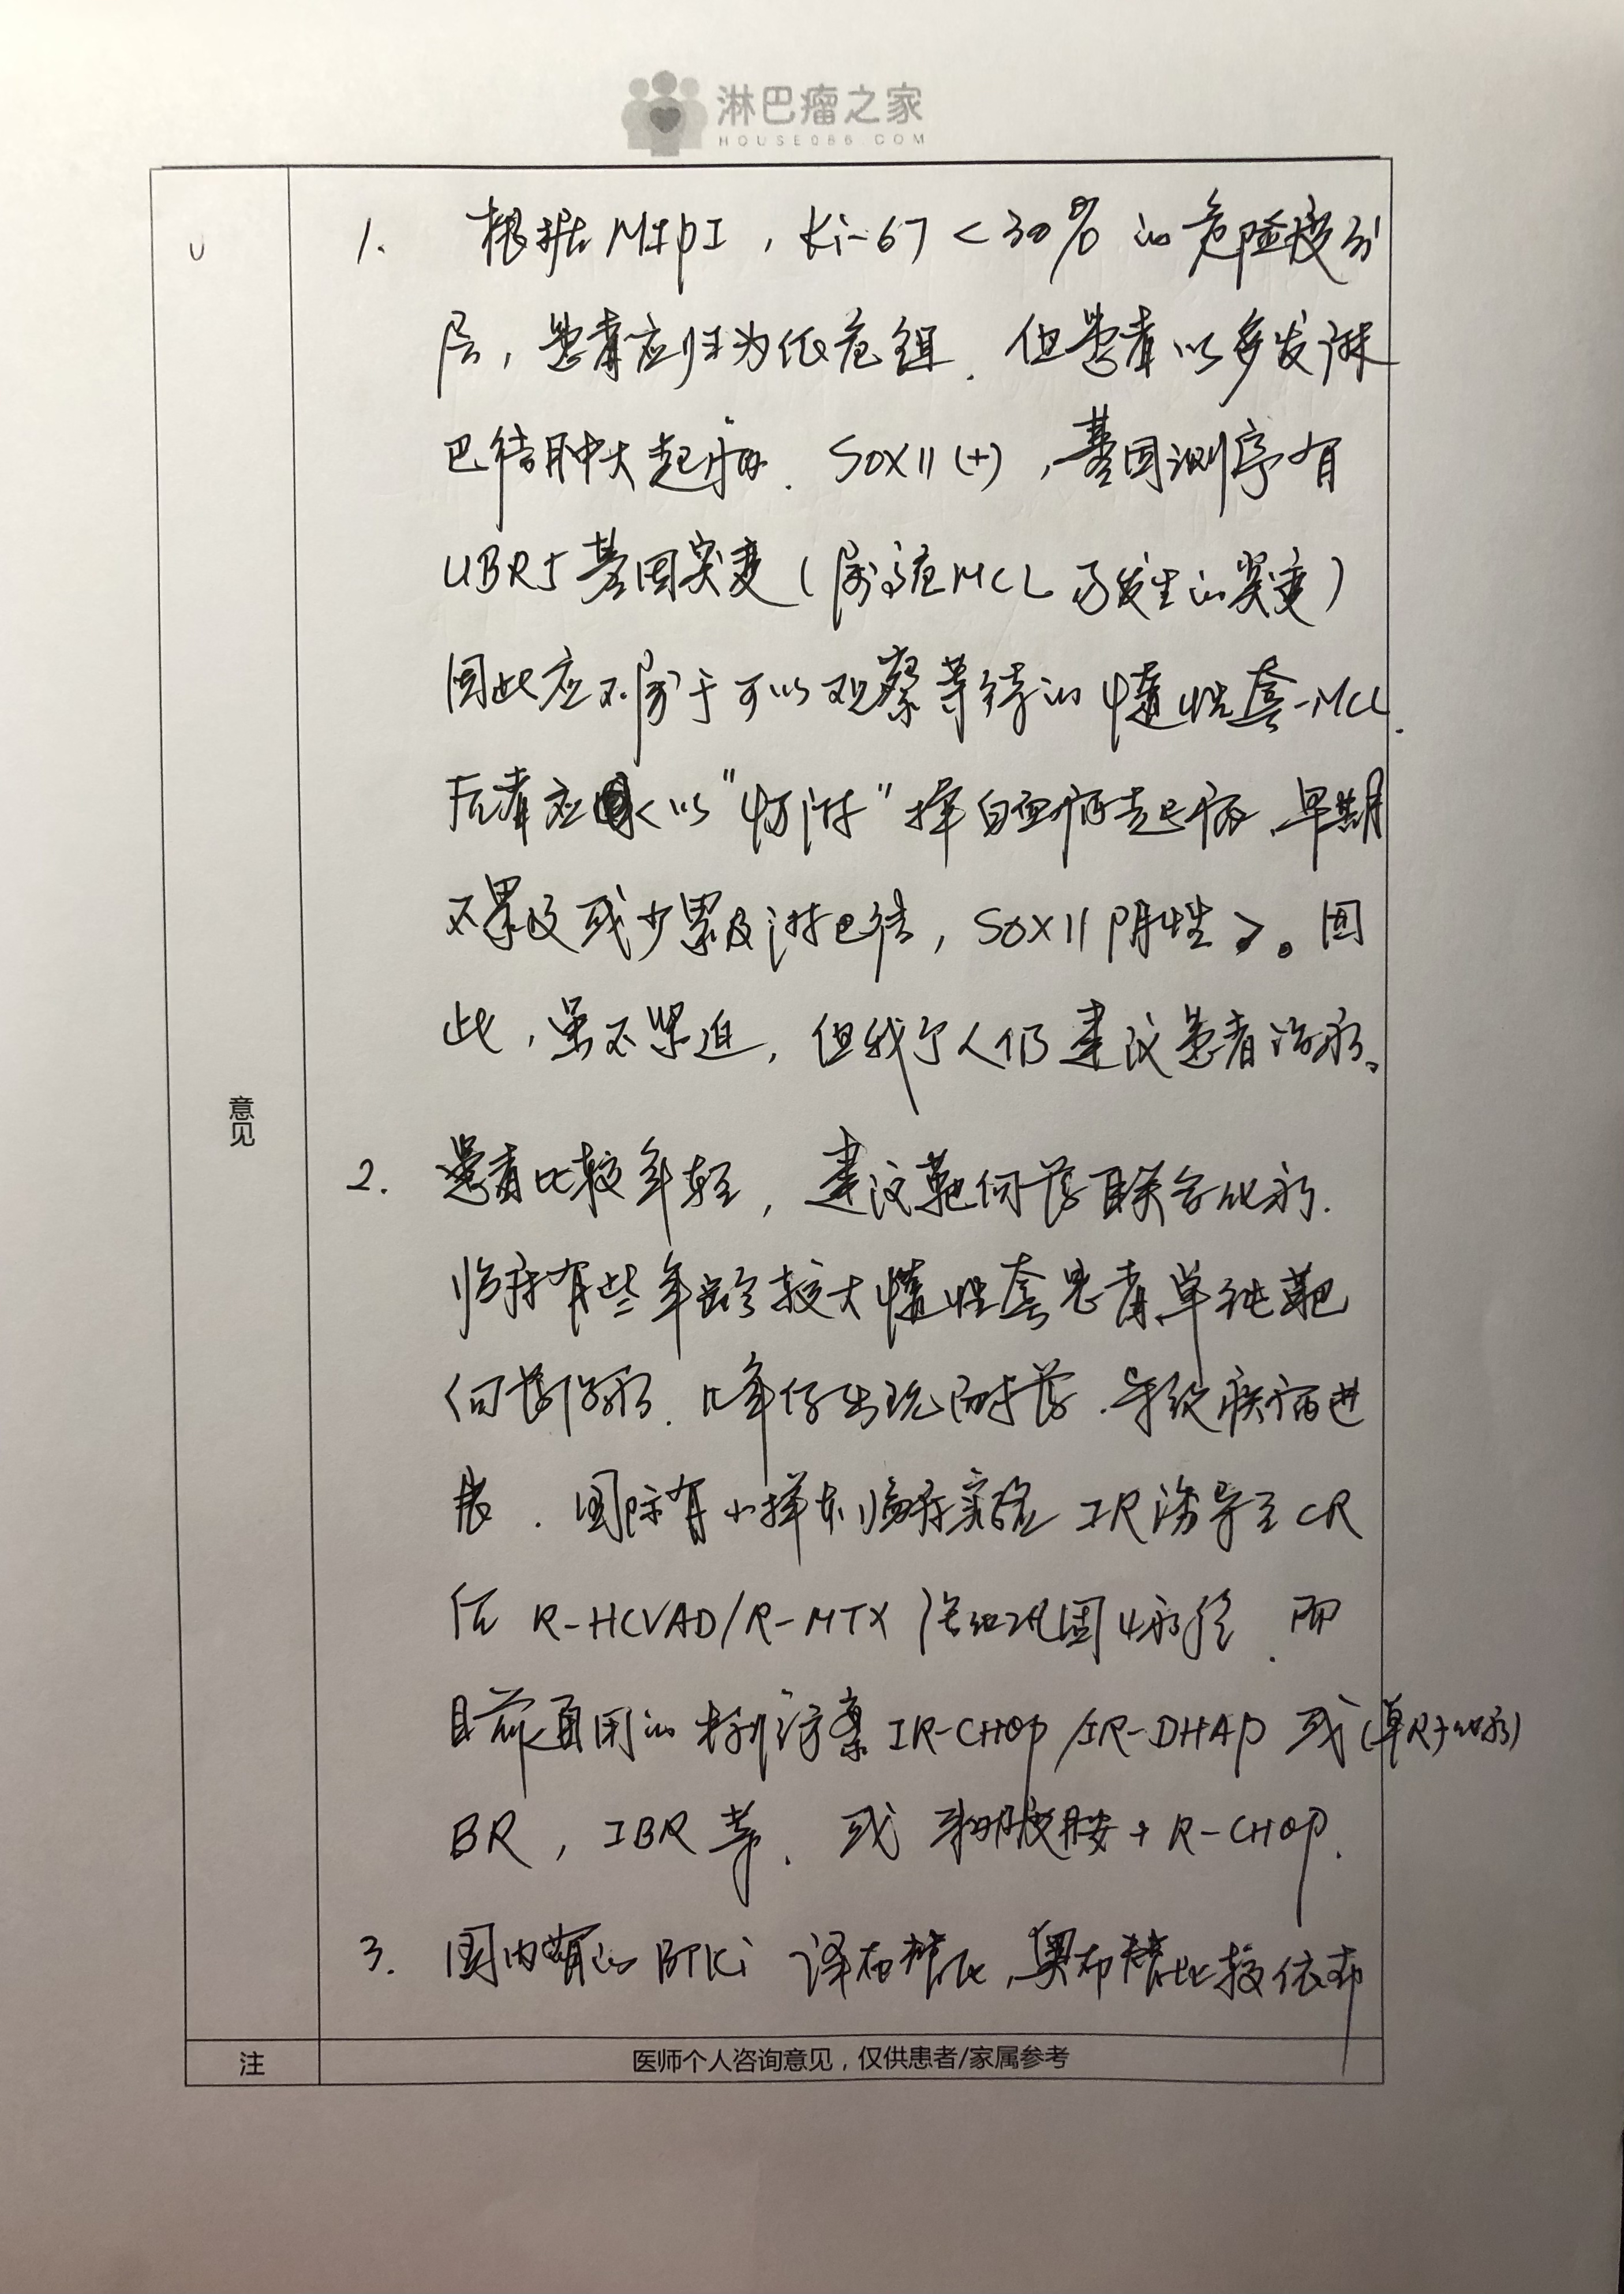 淋巴瘤之家
HOUSE086.COM
1. 根据MIPI，Ki-67<30%的危险度分
层，患者应归为低危组．但患者以多发淋
巴结肿大起病．SOX11(+)，基因测序有
UBR5基因突变（属高危MCL易发生的突变）
因此应不属于可以观察等待的惰性套-MCL.
后者应以"惰淋"样白血病起病、早期
不累及或少累及淋巴结，SOX11阴性。因
此，虽不紧迫，但我个人仍建议患者治疗。
意见
2. 患者比较年轻，建议靶向药联合化疗.
临床有些年龄较大惰性套患者单纯靶
向药治疗．几年后出现耐药．导致疾病进
展．国际有小样本临床实验IR诱导至CR
后R-HCVAD/R-MTX 巩固4疗程．而
目前通用的一些方案IR-CHOP/IR-DHAP 或(单R+化疗)
BR，IBR等．或来那度胺+R-CHOP.
3. 国内有的BTKi 泽布替尼，奥布替尼比较依布
注
医师个人咨询意见，仅供患者/家属参考